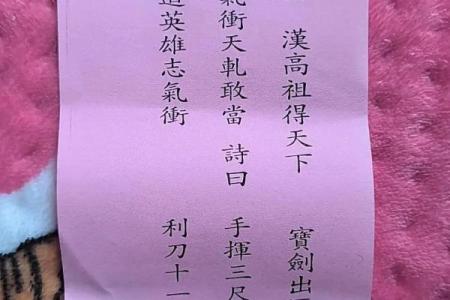 漢高祖得天下 寶劍出
氣衝天軋敢當 詩曰 手揮三尺
英雄志氣衝 利刀十一